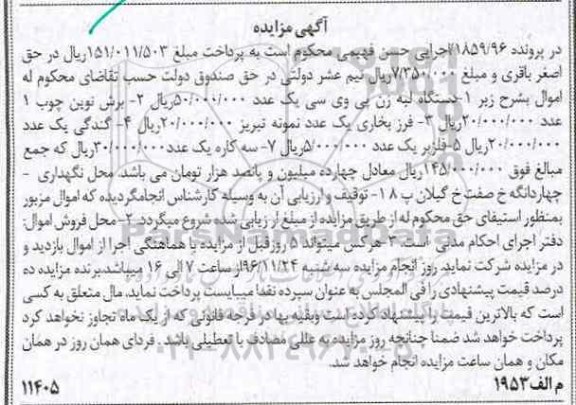 آگهی مزایده
در پرونده ۱۸۵۹/۹۶اجرایی حسن فهیمی محکوم است به پرداخت مبلغ ۱۵۱/۰۱۱/۵۰۳ریال در حق
اصغر باقری و مبلغ ۷/۳۵۰/۰۰۰ریال نیم عشر دولتی در حق صندوق دولت حسب تقاضای محکوم له
اموال بشرح زیر ۱-دستگاه لبه زن پی وی سی یک عدد ۵۰/۰۰۰/۰۰۰ریال ۲- برش نوین چوب ۱
عدد ۲۰/۰۰۰/۰۰۰ریال ۳- فرز بخاری یک عدد نمونه تبریز ۲۰/۰۰۰/۰۰۰ریال ۴- گندگی یک عدد
۲۰/۰۰۰/۰۰۰ریال ۵-فلزبر یک عدد ۵/۰۰۰/۰۰۰ریال ۷- سه کاره یک عدد۳۰/۰۰۰/۰۰۰ریال که جمع
مبالغ فوق ۱۴۵/۰۰۰/۰۰۰ریال معادل چهارده میلیون و پانصد هزار تومان می باشد. محل نگهداری -
چهاردانگه خ صفت خ گیلان پ ۱۸- توقیف و ارزیابی آن به وسیله کارشناس انجام گردیده که اموال مزبور
بمنظور استیفای حق محکوم له از طریق مزایده از مبلغ ارزیابی شده شروع میگردد. ۲- محل فروش اموال:
دفتر اجرای احکام مدنی است ۳- هرکس میتواند ۵ روز قبل از مزایده با هماهنگی اجرا از اموال بازدید و
در مزایده شرکت نماید. روز انجام مزایده سه شنبه ۹۶/۱۱/۲۴از ساعت ۷ الی ۱۶ میباشد.برنده مزایده ده
درصد قیمت پیشنهادی را فی المجلس به عنوان سپرده نقدا میبایست پرداخت نماید. مال متعلق به کسی
است که بالاترین قیمت را پیشنهاد کرده است وبقیه بها در فرجه قانونی که از یک ماه تجاوز نخواهد کرد
پرداخت خواهد شد ضمنا چنانچه روز مزایده به عللی مصادف با تعطیلی باشد . فردای همان روز در همان
مکان و همان ساعت مزایده انجام خواهد شد.
م الف۱۹۵۳
۱۱۴۰۵
ParsNamadData
۰۲۱-۸۸۳۴۹۶۷۰